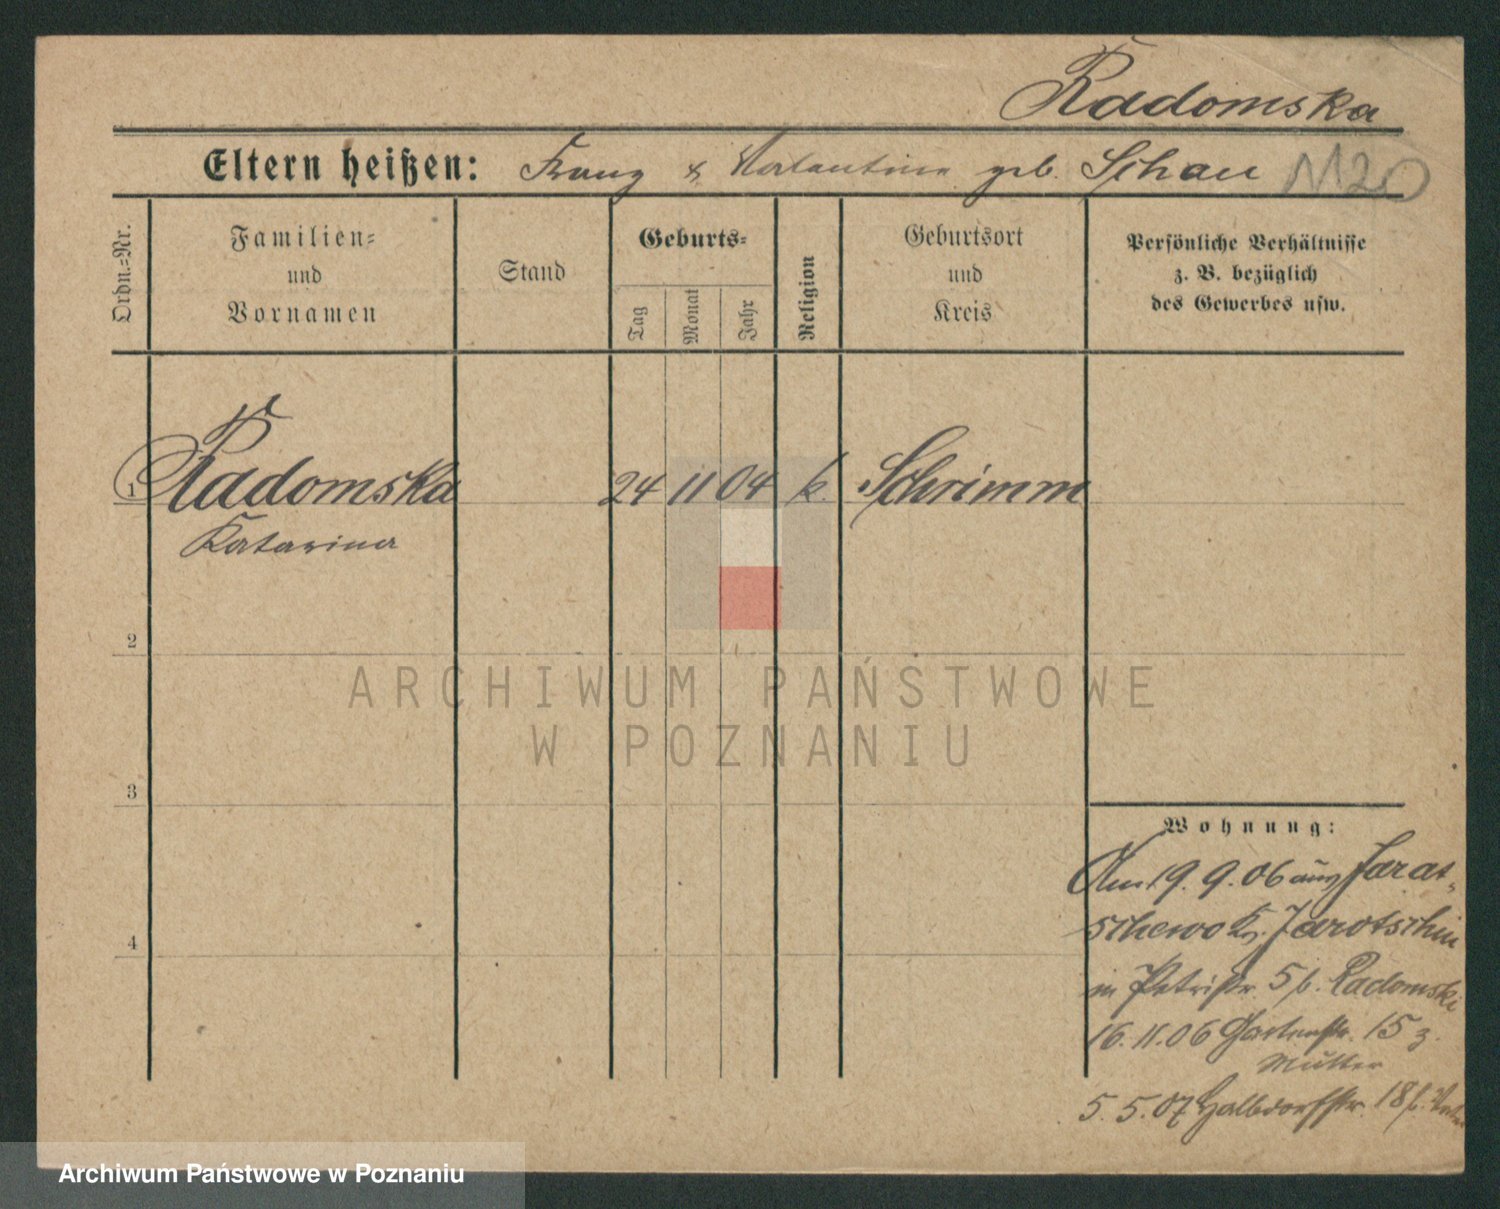 Radomska
Eltern heißen: Franz & Valantine geb. Schau 1120
Ordn.-Nr.
Familien-
und
Vornamen
Stand
Geburts-
Tag
Monat
Jahr
Religion
Geburtsort
und
Kreis
Persönliche Verhältnisse
z. B. bezüglich
des Gewerbes usw.
1 Radomska 24 11 04 k. Schrimm
Katarina
2
3
4
ARCHIWUM PAŃSTWOWE
W POZNANIU
Wohnung:
Am 19.9.06 aus Jarat-
schewo Kr. Jarotschin
in Petristr. 5 b. Radomski
16.11.06 Gartenstr. 15 z.
Mutter
5.5.07 Halbdorfstr. 18 b.
Archiwum Państwowe w Poznaniu